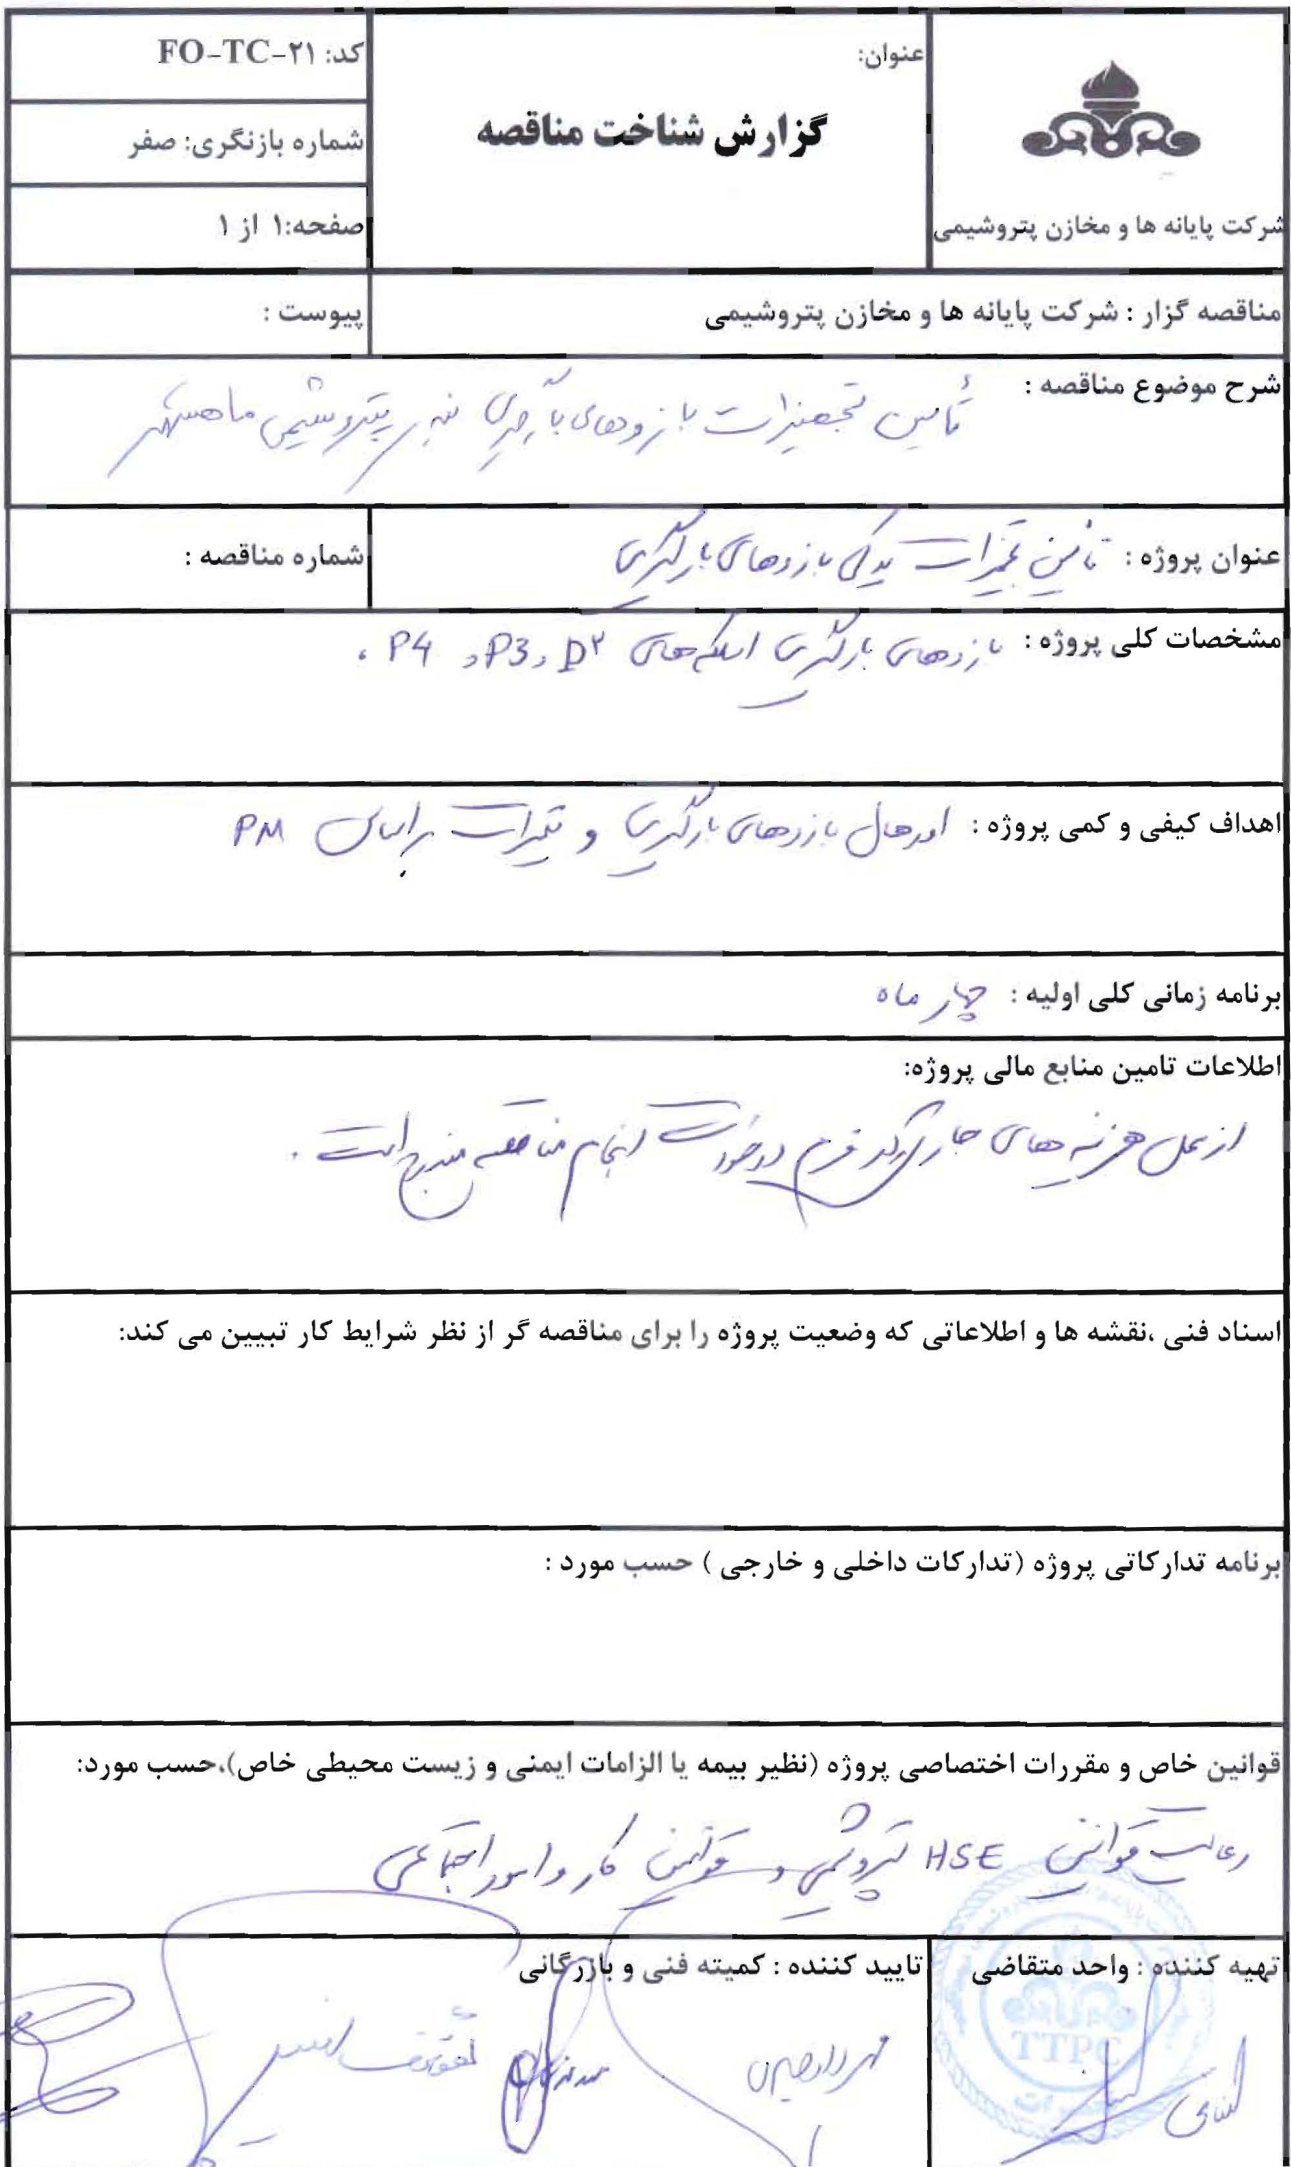 شرکت پایانه ها و مخازن پتروشیمی
عنوان:
گزارش شناخت مناقصه
کد: FO-TC-۲۱
شماره بازنگری: صفر
صفحه:۱ از ۱
مناقصه گزار : شرکت پایانه ها و مخازن پتروشیمی
پیوست :
شرح موضوع مناقصه : تأمین تجهیزات بازوهای بارگیری بندر پتروشیمی ماهشهر
عنوان پروژه : تأمین تجهیزات یدکی بازوهای بارگیری
شماره مناقصه :
مشخصات کلی پروژه : بازوهای بارگیری اسکله های D۲ و P3 و P4 .
اهداف کیفی و کمی پروژه : اورهال بازوهای بارگیری و تعمیرات براساس PM
برنامه زمانی کلی اولیه : چهار ماه
اطلاعات تامین منابع مالی پروژه:
از محل هزینه های جاری فرم درخواست انجام مناقصه مندرج است .
اسناد فنی ،نقشه ها و اطلاعاتی که وضعیت پروژه را برای مناقصه گر از نظر شرایط کار تبیین می کند:
برنامه تدارکاتی پروژه (تدارکات داخلی و خارجی ) حسب مورد :
قوانین خاص و مقررات اختصاصی پروژه (نظیر بیمه یا الزامات ایمنی و زیست محیطی خاص)،حسب مورد:
رعایت قوانین HSE پتروشیمی و قوانین کار و امور اجتماعی
تهیه کننده : واحد متقاضی
تایید کننده : کمیته فنی و بازرگانی
TTPC